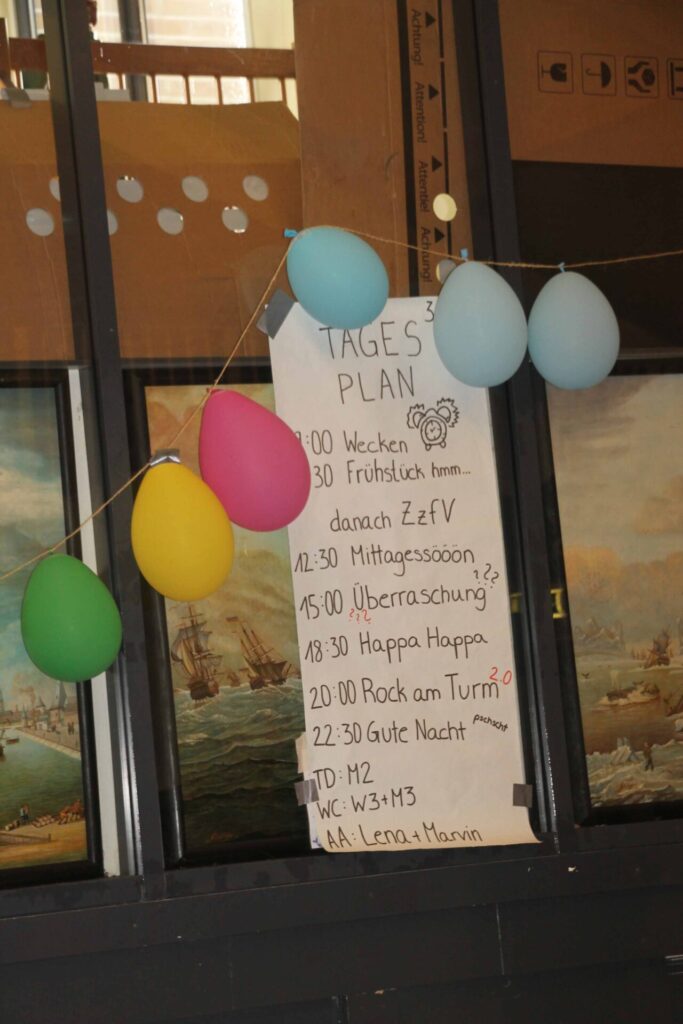 Achtung!
Attention!
Attentie!
Achtung!
3
TAGES
PLAN
:00 Wecken
:30 Frühstück hmm...
danach ZzfV
12:30 Mittagessööön
15:00 Überraschung ???
???
18:30 Happa Happa
20:00 Rock am Turm 2.0
22:30 Gute Nacht pschscht
TD: M2
WC: W3+M3
AA: Lena + Marvin